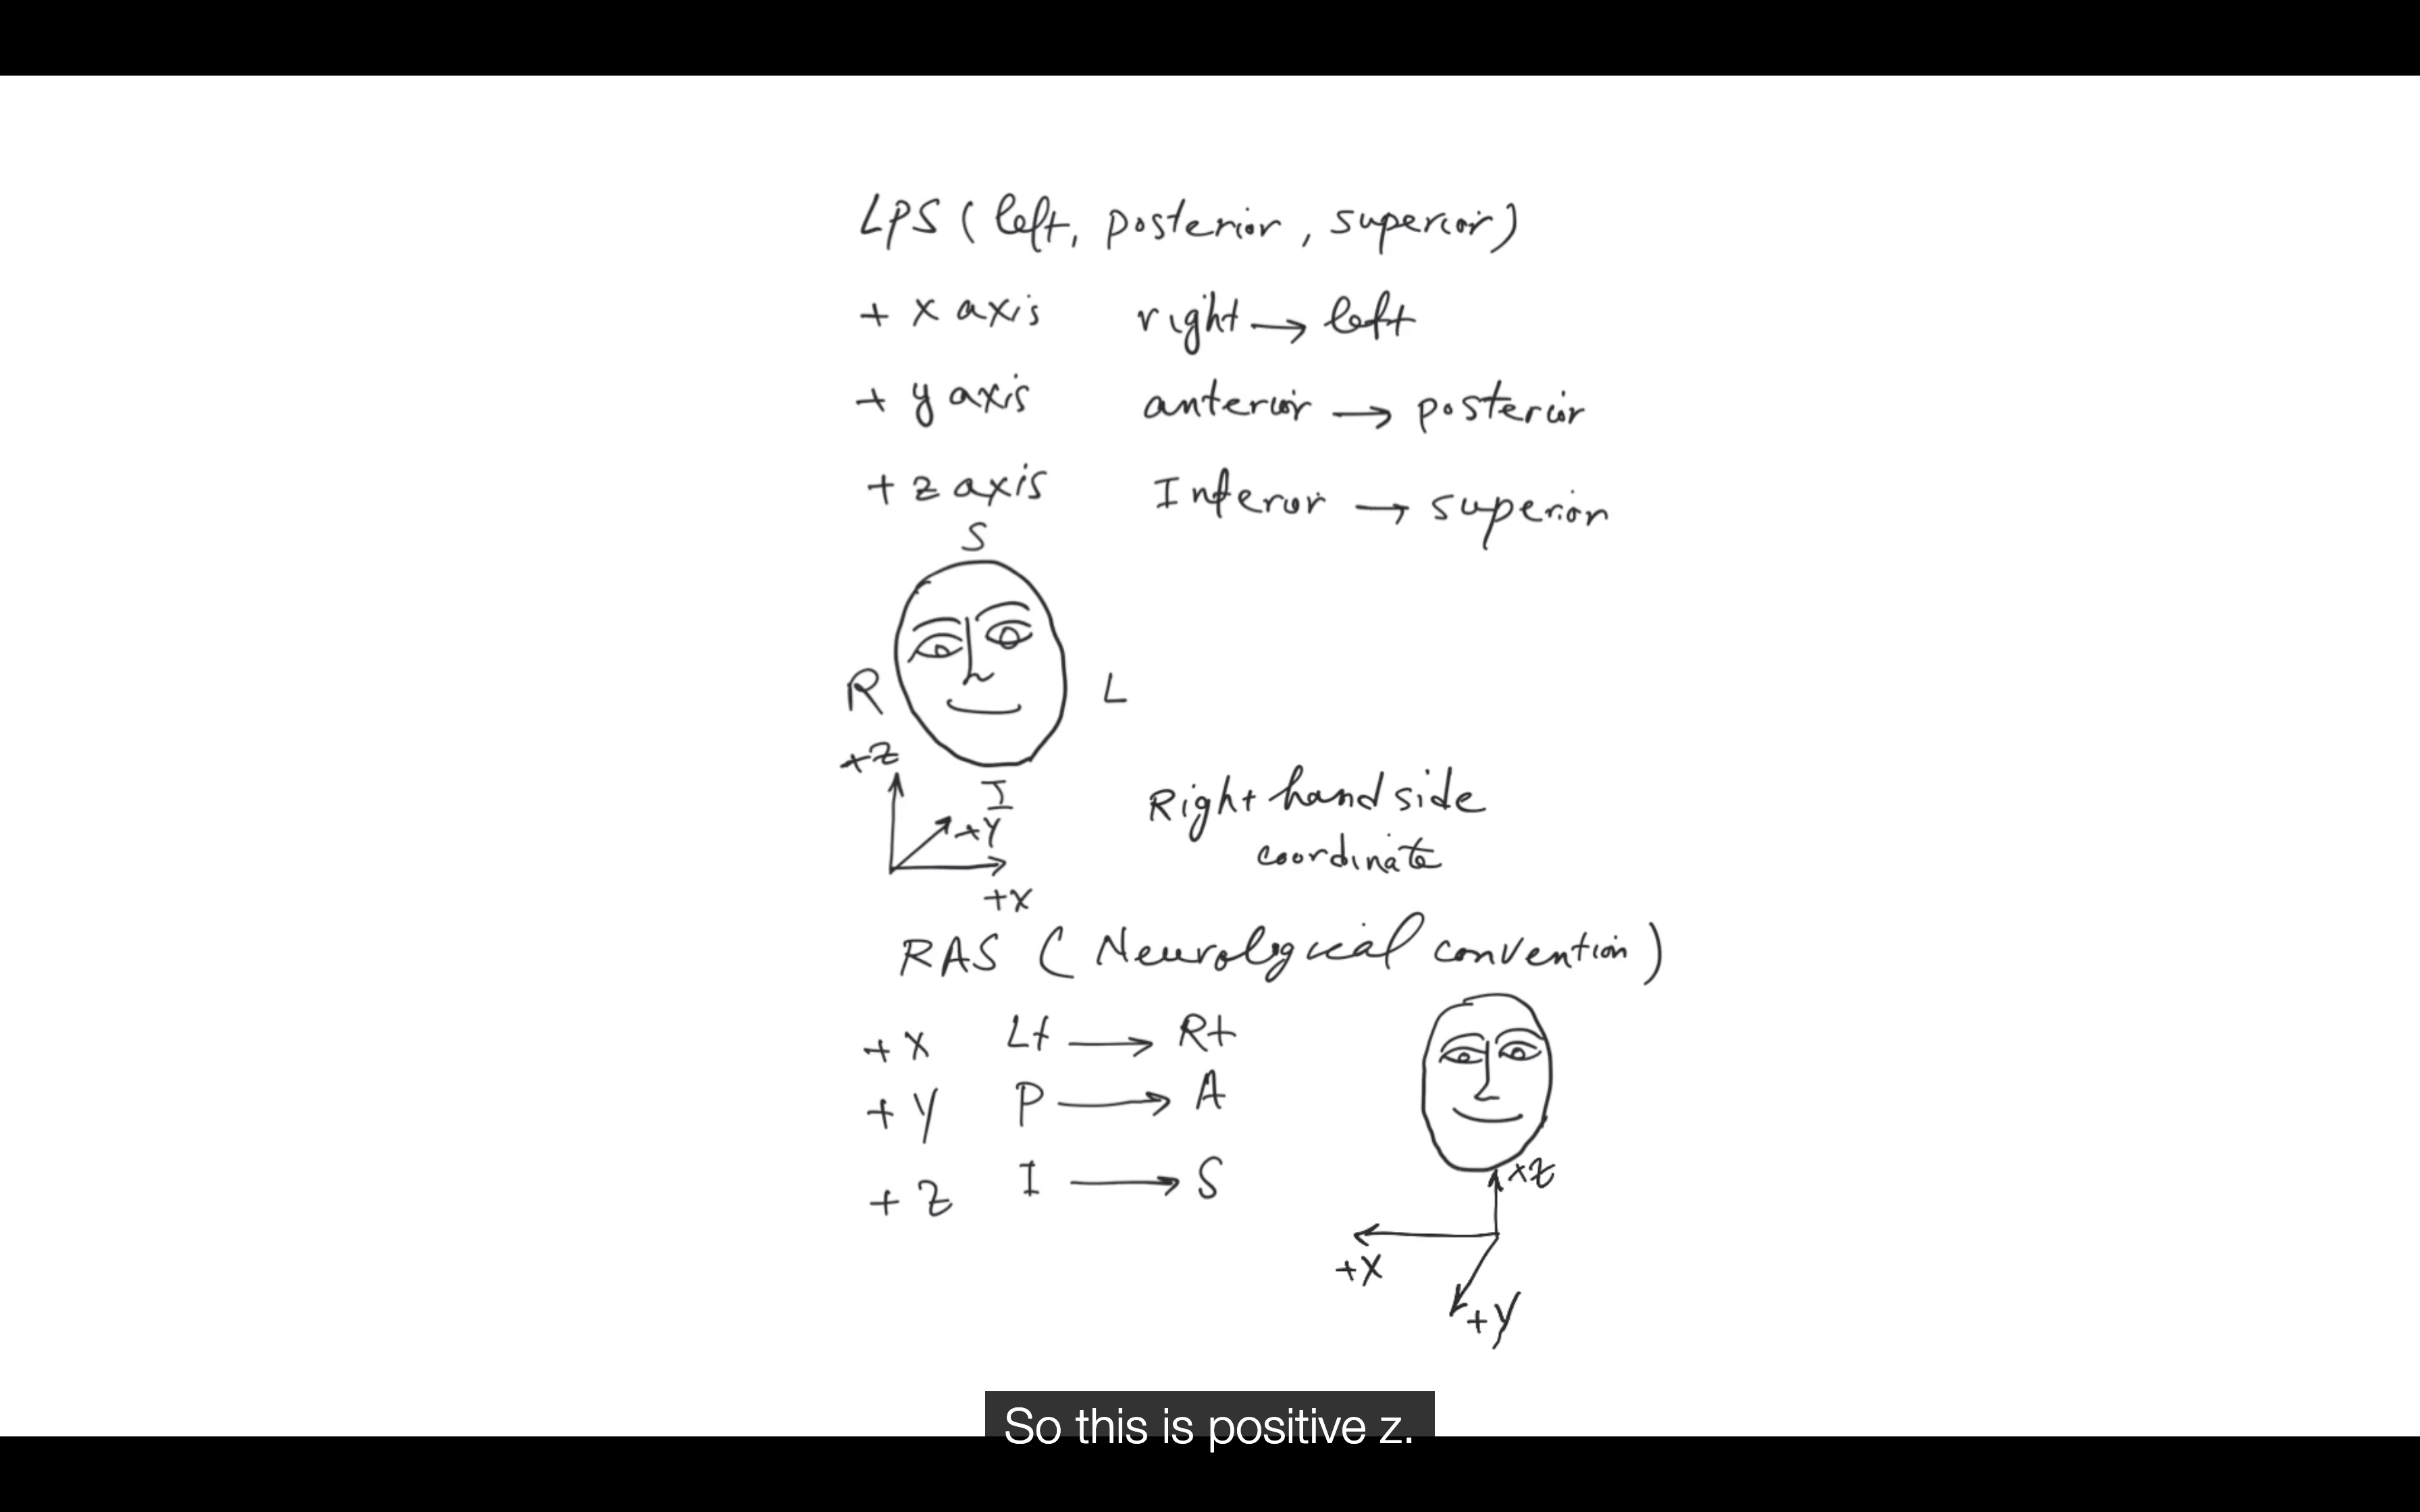 LPS (left, posterior, superior)
+ x axis right → left
+ y axis anterior → posterior
+ z axis Inferor → superior
S
R L
+Z
I
+Y
+X
Right hand side
coordinate
RAS (Neurological convention)
+ X Lt → Rt
+ Y P → A
+ Z I → S
+Z
+X
+Y
So this is positive z.